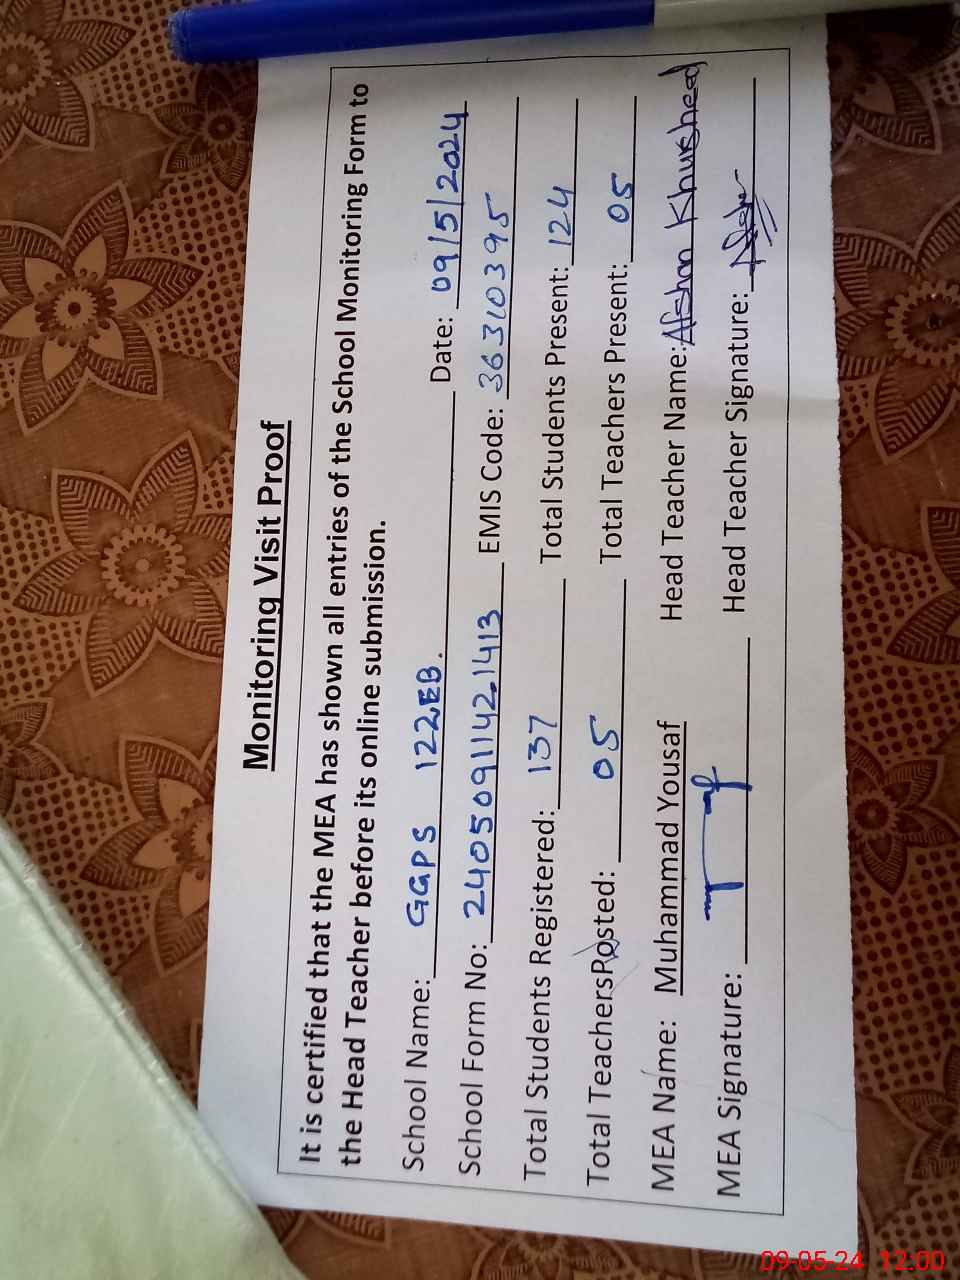 Monitoring Visit Proof
It is certified that the MEA has shown all entries of the School Monitoring Form to
the Head Teacher before its online submission.
School Name: GGPS 122EB. Date: 09/5/2024
School Form No: 24050911421413 EMIS Code: 36310395
Total Students Registered: 137 Total Students Present: 124
Total Teachers Posted: 05 Total Teachers Present: 05
MEA Name: Muhammad Yousaf Head Teacher Name: Afshan Khurshead
MEA Signature: Head Teacher Signature:
09-05-24 12:00